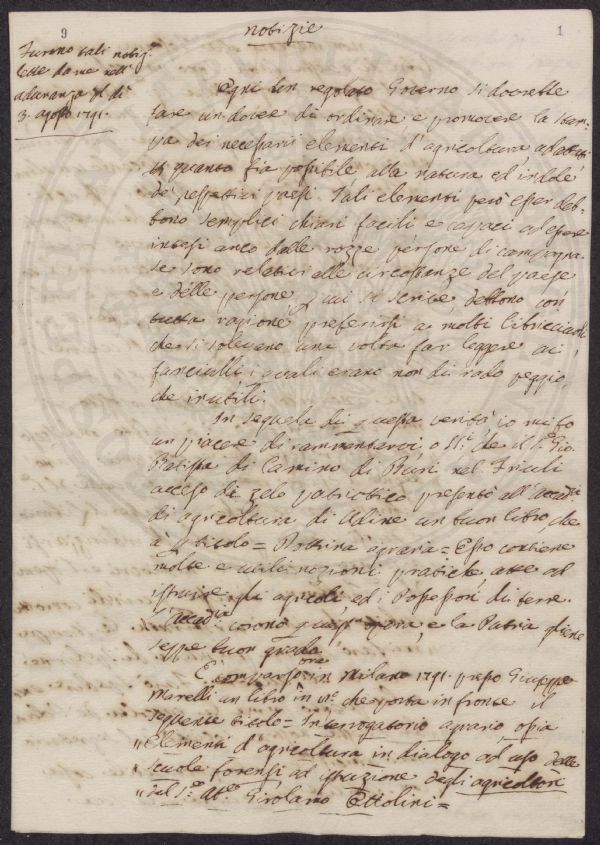 9
notizie
1
Furono tali notiz.e
lette da me nell'
adunanza il dì
3. agosto 1791.
Ogni ben regolato Governo si dovrebbe
fare un dovere di ordinare e promovere la stam-
pa dei necessarj elementi d'agricoltura adattati
quanto sia possibile alla natura ed indole
de' rispettivi paesi. Tali elementi però esser deb-
bono semplici chiari facili e capaci ad essere
intesi anco dalle rozze persone di campagna
se sono relativi alle circostanze del paese
e delle persone, a cui si scrive, debbono con
tutta ragione preferirsi a molti libricciuoli,
che si solevano una volta far leggere ai
fanciulli, i quali erano non di rado peggio,
che inutili.
In sequela di questa verità io mi fo
un piacere di rammentarvi, o SS.i che il S.r Gio.
Batista di Camino di Buri nel Friuli
acceso di zelo patriotico presentò all'accad.a
di agricoltura di Udine un buon libro che
à p titolo = Dottrina agraria = Esso contiene
molte e utili nozioni pratiche, atte ad
istruire gli agricoli, ed i Possessori di terre.
L'accad.a coronò quest'opera, e la Patria gliene
seppe buon grado.
E' comparso ora in Milano 1791. presso Giuseppe
Marelli un libro in 12.o che porta in fronte il
seguente titolo = Interrogatorio agrario, ossia
„ Elementi d'agricoltura in dialogo ad uso delle
„ scuole forensi ad istruzione degli agricoltori
„ del S.r Ab.e Girolamo Ottolini =